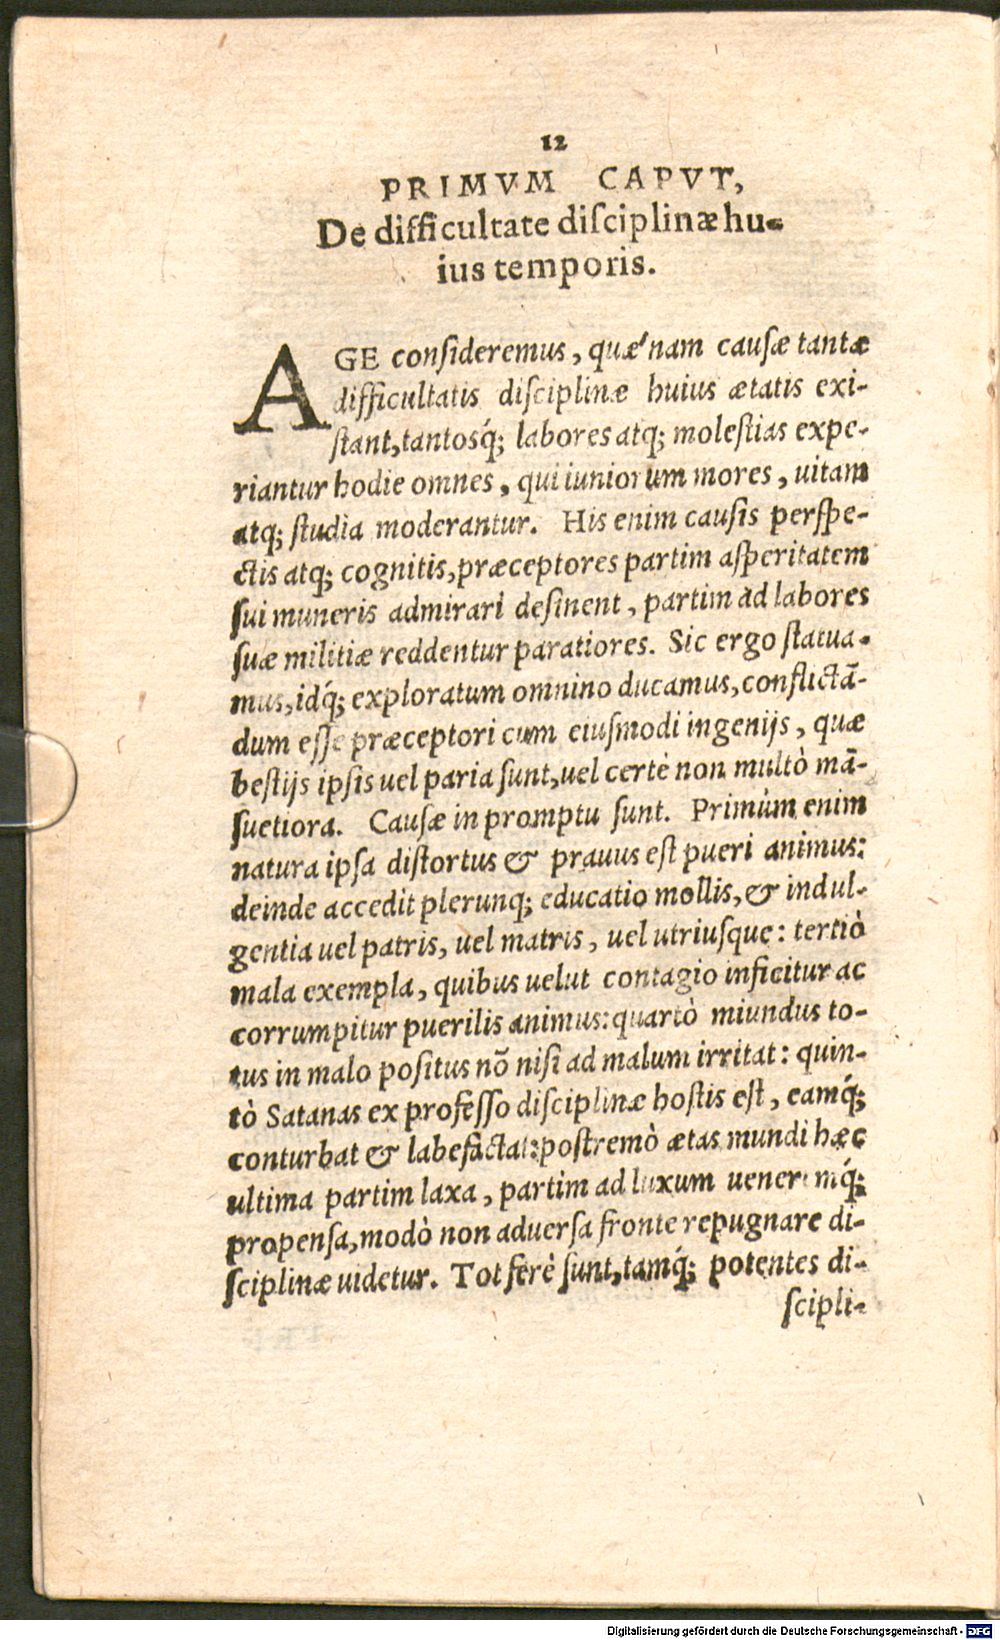 12
PRIMVM CAPVT,
De difficultate diſciplinæ hu-
ius temporis.
AGE conſideremus, quæ'nam cauſæ tantæ
difficultatis diſciplinæ huius ætatis exi-
ſtant, tantosq́; labores atq; moleſtias expe-
riantur hodie omnes, qui iuniorum mores, uitam
atq; ſtudia moderantur. His enim cauſis perſpe-
ctis atq; cognitis, præceptores partim aſperitatem
ſui muneris admirari deſinent, partim ad labores
ſuæ militiæ reddentur paratiores. Sic ergo ſtatua-
mus, idq́; exploratum omnino ducamus, conflictā-
dum eſſe præceptori cum eiuſmodi ingenijs, quæ
beſtijs ipſis uel paria ſunt, uel certè non multò mā-
ſuetiora. Cauſæ in promptu ſunt. Primùm enim
natura ipſa diſtortus & prauus eſt pueri animus:
deinde accedit plerunq; educatio mollis, & indul-
gentia uel patris, uel matris, uel utriusque: tertiò
mala exempla, quibus uelut contagio inficitur ac
corrumpitur puerilis animus: quartò miundus to-
tus in malo poſitus nō niſi ad malum irritat: quin-
tò Satanas ex profeſſo diſciplinæ hoſtis eſt, eamq́;
conturbat & labefactat: poſtremò ætas mundi hæc
ultima partim laxa, partim ad luxum ueneremq́;
propenſa, modò non aduerſa fronte repugnare di-
ſciplinæ uidetur. Tot ferè ſunt, tamq́; potentes di-
ſcipli-
Digitalisierung gefördert durch die Deutsche Forschungsgemeinschaft - DFG